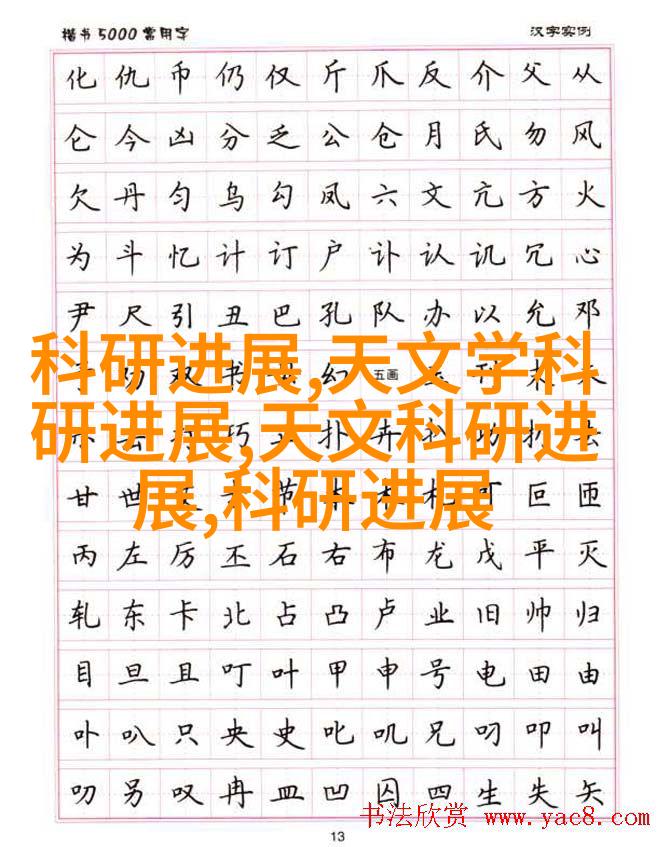 楷书5000常用字 汉字实例
化仇币仍仅斤爪反介父从
仑今凶分乏公仓月氏勿风
欠丹匀乌勾凤六文亢方火
为斗忆计订户讣认讥冗心
尹尺引丑巴孔队办以允邓
科研进展,天文学科
双书幻五画
研进展,天文科研进
巧扑
展,科研进展
甘世匝匣
丙左厉丕石右布龙戊平灭
轧东卡北占凸卢业旧帅归
目旦且叮叶甲申号电田由
卟叭只央史叱叽兄叼叩叫
叻另叹冉皿凹囚四生失矢
书法欣赏 www.yac8.com
13